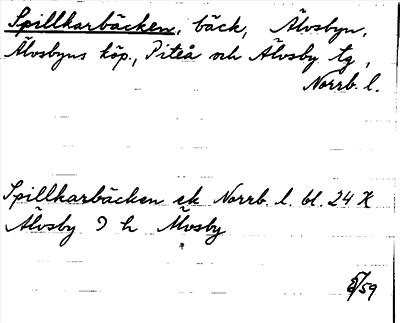 Spillkarbäcken, bäck, Älvsbyn,
Älvsbyns köp., Piteå och Älvsby tg,
Norrb. l.
Spillkarbäcken ek Norrb. l. bl. 24 X
Älvsby 9 h Älvsby
/59